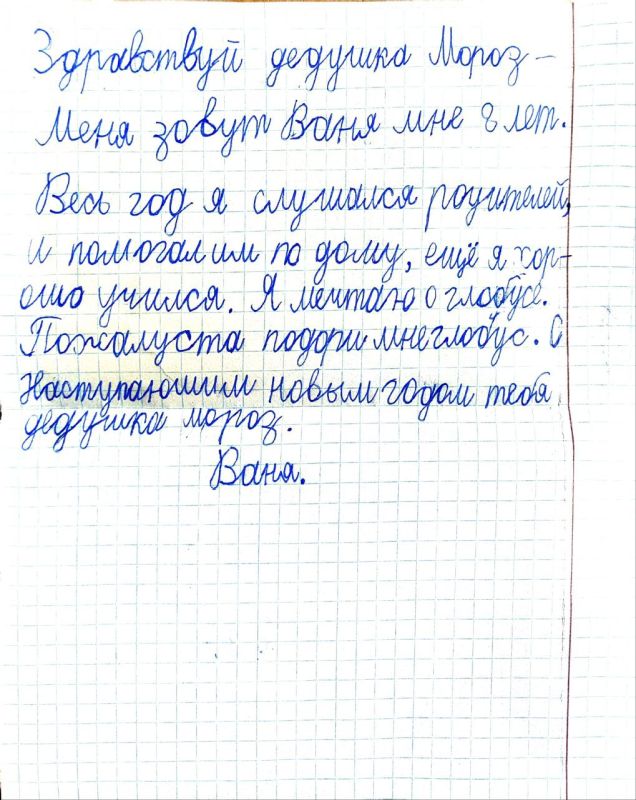 Здравствуй дедушка Мороз –
Меня зовут Ваня мне 8 лет.
Весь год я слушался родителей,
и помогал им по дому, ещё я хор-
ошо учился. Я мечтаю о глобусе.
Пожалуста подори мне глобус. С
Наступаюшим новым годом тебя
дедушка мороз.
Ваня.